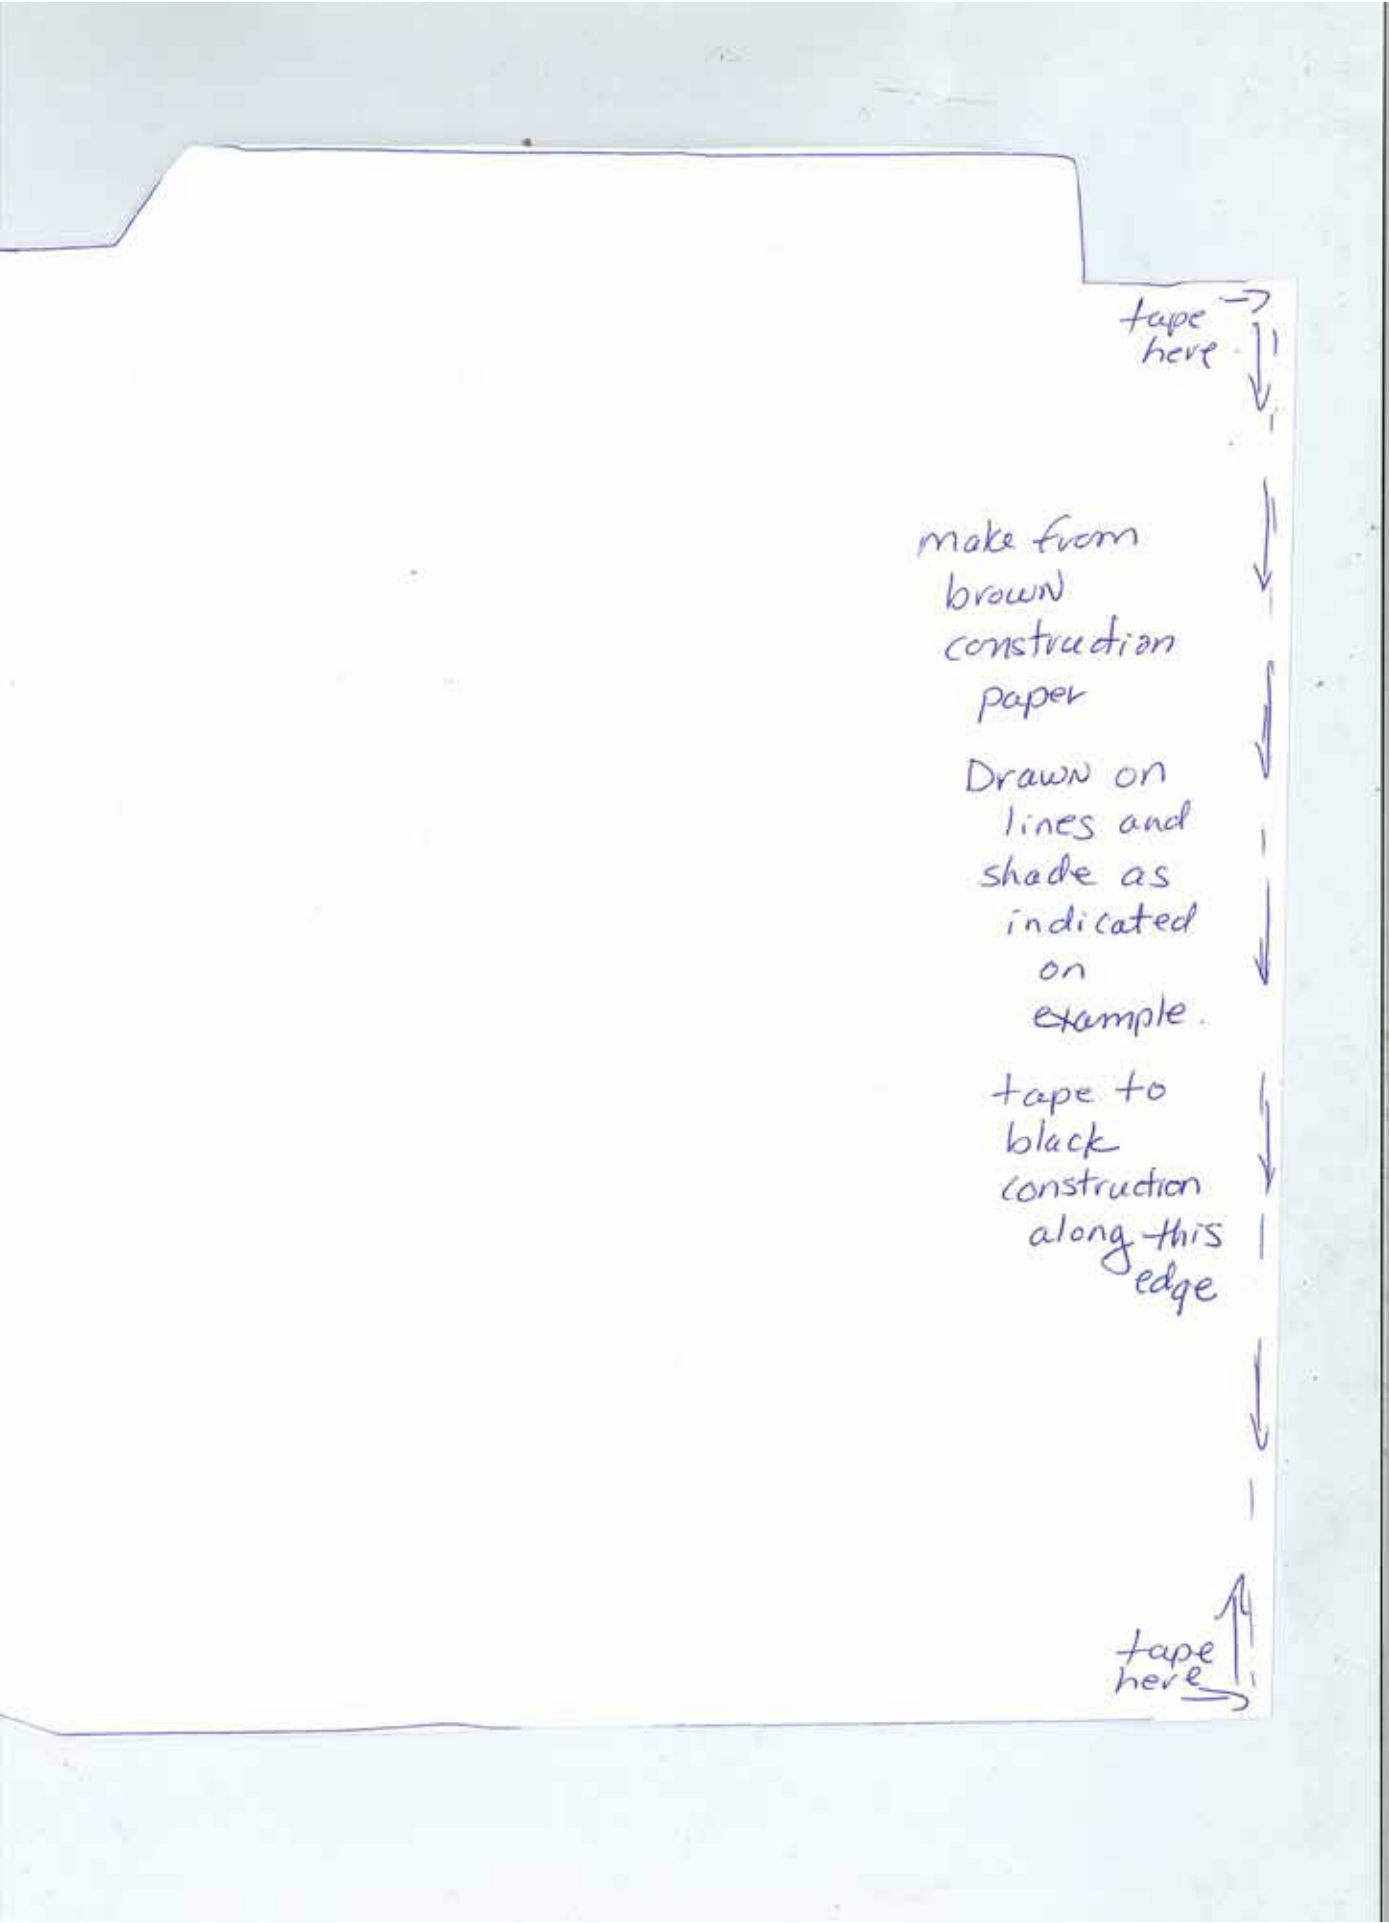 tape
here
make from
brown
construction
paper
Drawn on
lines and
shade as
indicated
on
example.
tape to
black
construction
along this
edge
tape
here